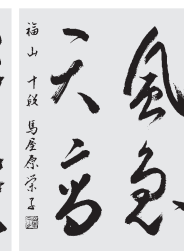 風急
天高
福山 十段 馬屋原栄子